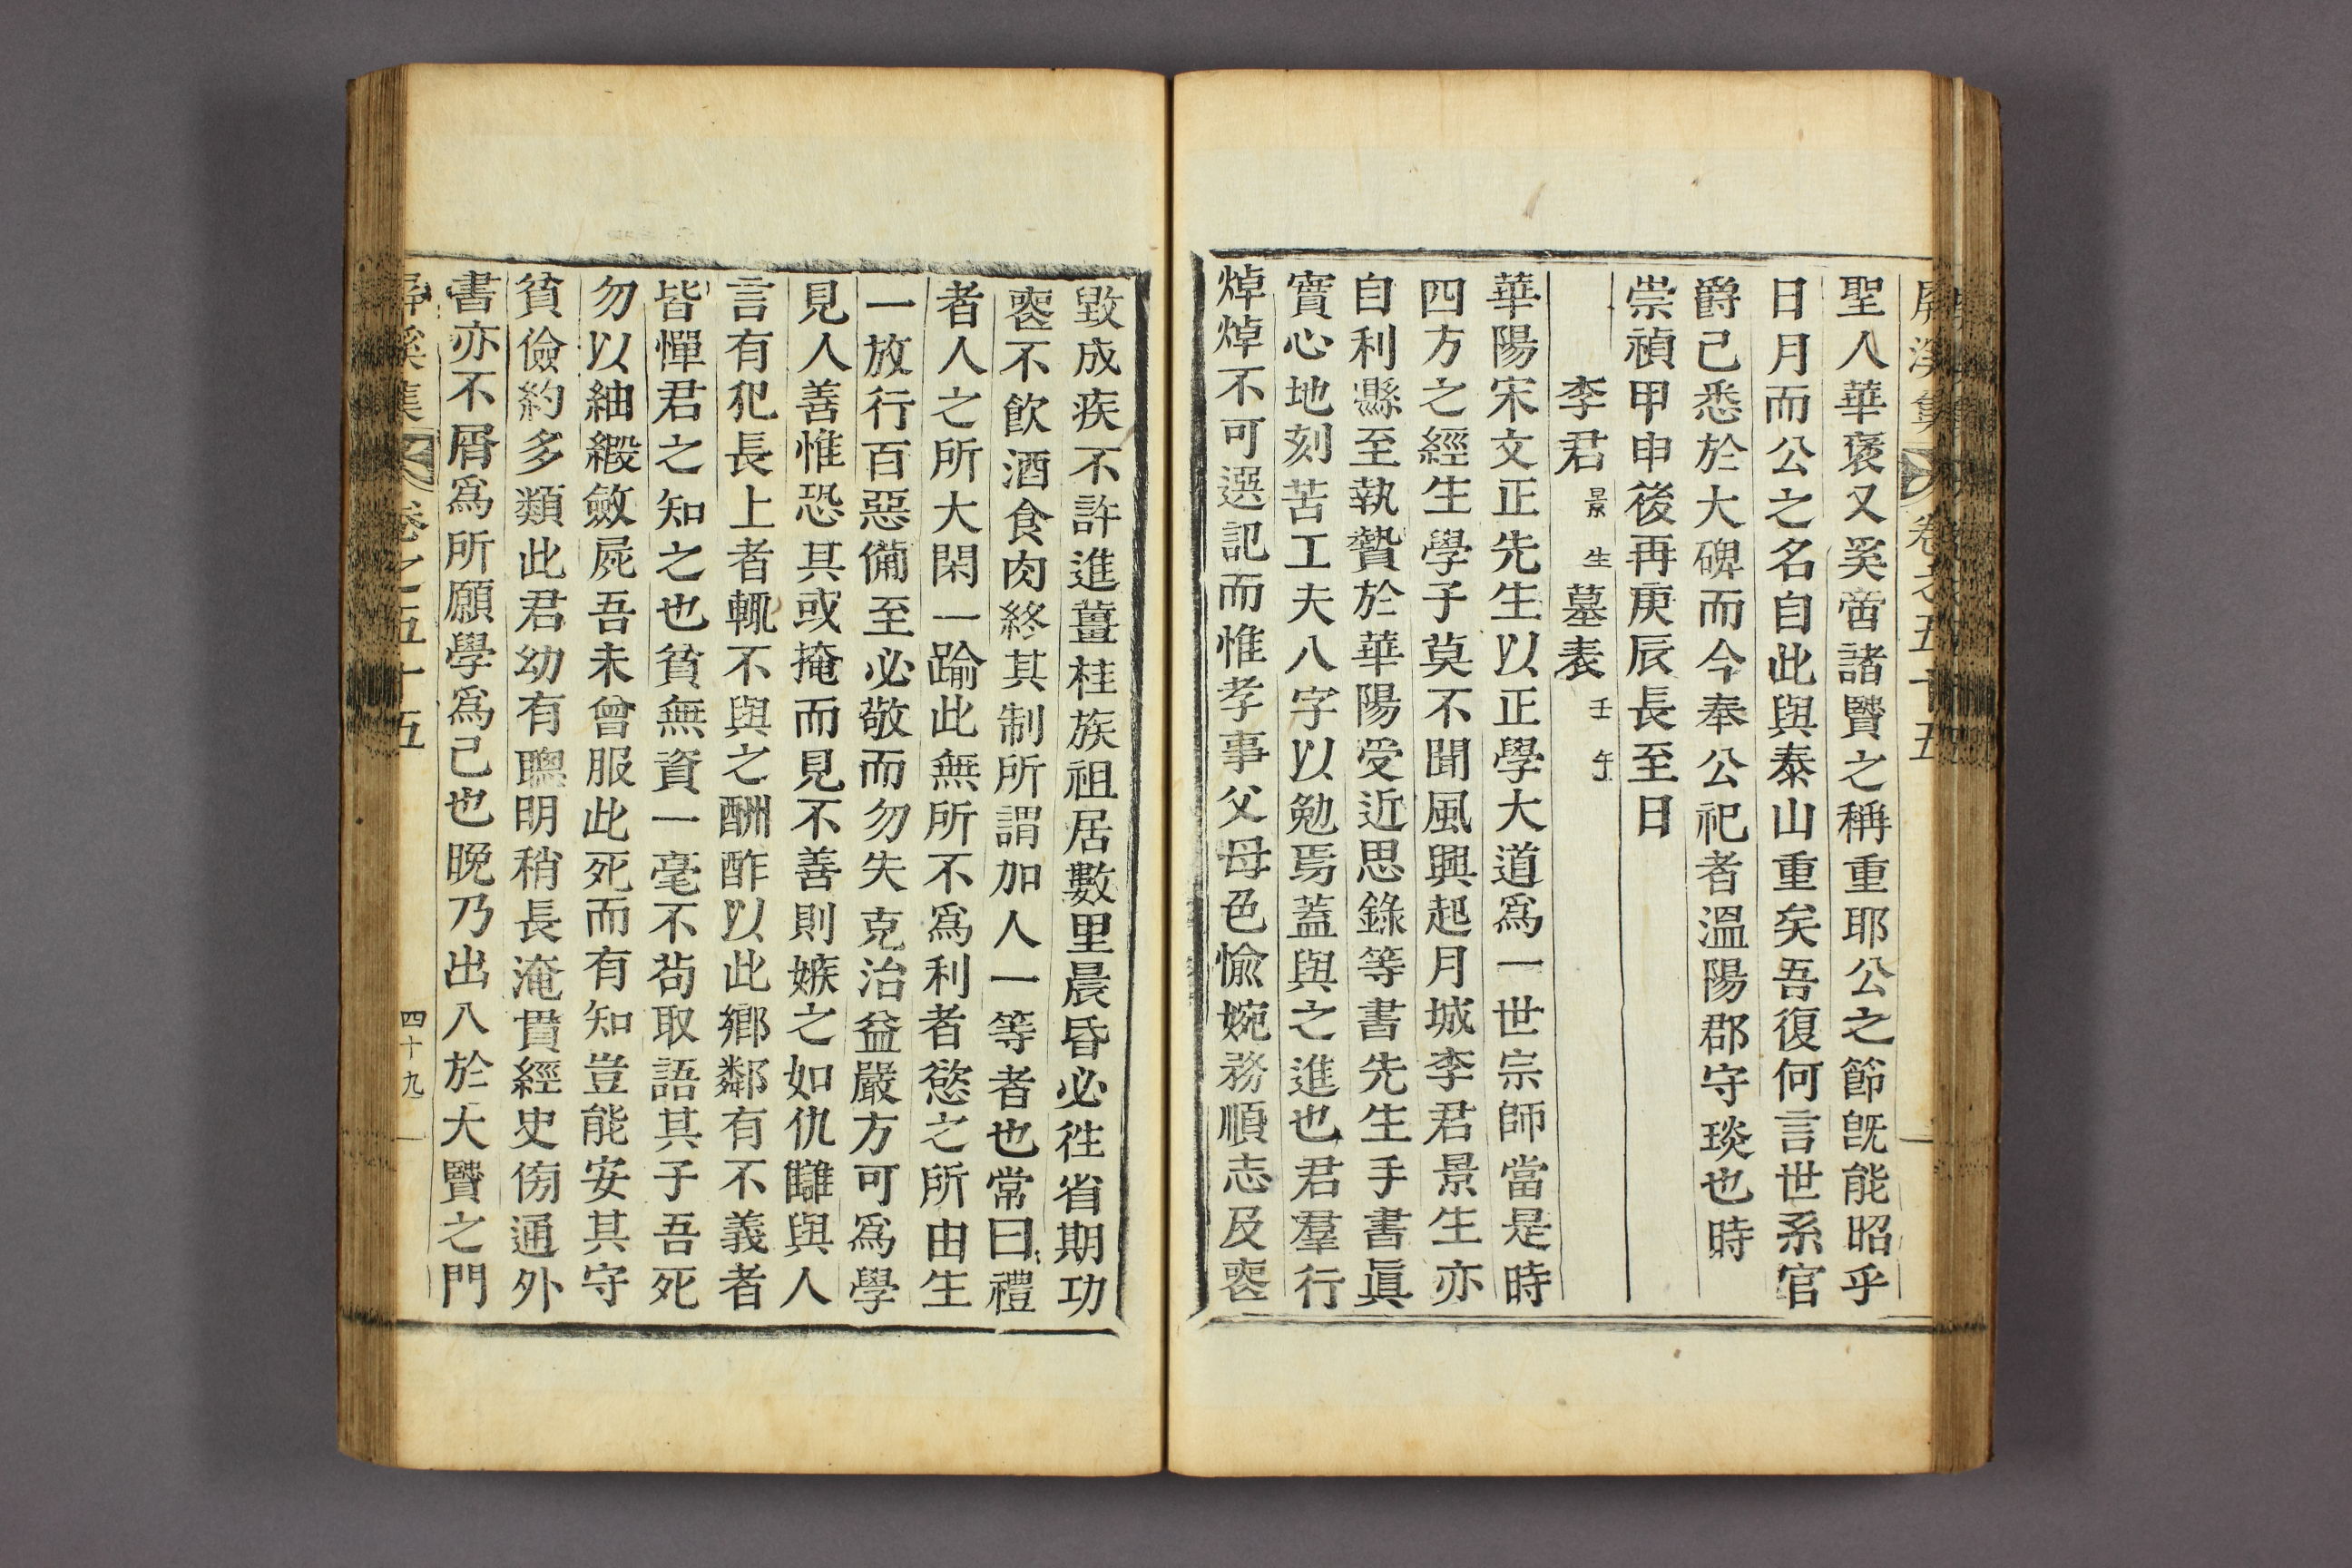 屛溪集 卷之五十五
聖人華褒又奚啻諸賢之稱重耶公之節旣能昭乎
日月而公之名自此與泰山重矣吾復何言世系官
爵已悉於大碑而今奉公祀者溫陽郡守琰也時
崇禎甲申後再庚辰長至日
李君景生墓表壬午
華陽宋文正先生以正學大道爲一世宗師當是時
四方之經生學子莫不聞風興起月城李君景生亦
自利縣至執贄於華陽受近思錄等書先生手書眞
實心地刻苦工夫八字以勉焉蓋與之進也君羣行
焯焯不可選記而惟孝事父母色愉婉務順志及喪
毀成疾不許進薑桂族祖居數里晨昏必徃省期功
喪不飮酒食肉終其制所謂加人一等者也常曰禮
者人之所大閑一踰此無所不爲利者慾之所由生
一放行百惡備至必敬而勿失克治益嚴方可爲學
見人善惟恐其或掩而見不善則嫉之如仇讎與人
言有犯長上者輒不與之酬酢以此鄕鄰有不義者
皆憚君之知之也貧無資一毫不苟取語其子吾死
勿以紬緞斂屍吾未曾服此死而有知豈能安其守
貧儉約多類此君幼有聰明稍長淹貫經史傍通外
書亦不屑爲所願學爲己也晩乃出入於大賢之門
屛溪集 卷之五十五 四十九